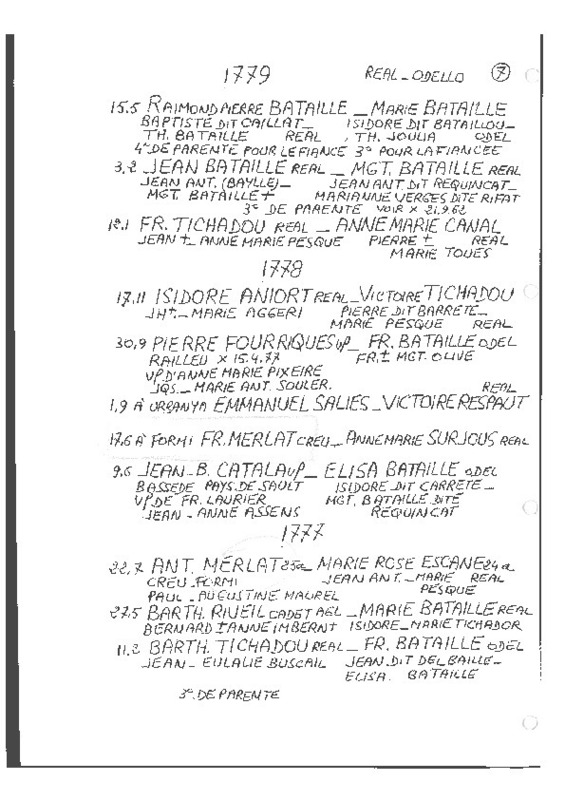 1779 REAL_ODELLO 7
15.5 RAIMOND PIERRE BATAILLE _ MARIE BATAILLE
BAPTISTE DIT CAILLAT_ ISIDORE DIT BATAILLOU_
TH. BATAILLE REAL , TH. JOULIA ODEL
4° DE PARENTE POUR LE FIANCE 3° POUR LA FIANCEE
3.2 JEAN BATAILLE REAL _ MGT. BATAILLE REAL
JEAN ANT. (BAYLLE)_ JEAN ANT. DIT REQUINCAT_
MGT. BATAILLE + MARIANNE VERGES DITE RIFAT
3° DE PARENTE VOIR X 21.9.62
FR. TICHADOU REAL _ ANNE MARIE CANAL
JEAN +_ ANNE MARIE PESQUE PIERRE + REAL
MARIE TOUES
1778
17.11 ISIDORE ANIORT REAL_VICTOIRE TICHADOU
JH+_ MARIE AGGERI PIERRE DIT BARRETE_
MARIE PESQUE REAL
30.9 PIERRE FOURRIQUES VP_ FR. BATAILLE ODEL
RAILLEU X 15.4.77 FR.+ MGT. OLIVE
VP D'ANNE MARIE PIXEIRE
JQS._ MARIE ANT. SOULER. REAL
1.9 A URGANYA EMMANUEL SALIES_VICTOIRE RESPAUT
17.6 A FORMI FR. MERLAT CREU_ ANNE MARIE SURJOUS REAL
9.6 JEAN_B. CATALA VP_ ELISA BATAILLE ODEL
BASSEDE PAYS. DE SAULT ISIDORE DIT CARRETE_
VP. DE FR. LAURIER MGT. BATAILLE DITE
JEAN - ANNE ASSENS REQUINCAT
1777
22.7 ANT. MERLAT 25a_ MARIE ROSE ESCANE 24 a
CREU_FORMI JEAN ANT._MARIE REAL
PAUL _ AUGUSTINE MAUREL PESQUE
27.5 BARTH. RIVEIL CADET AGL_MARIE BATAILLE REAL
BERNARD + ANNE IMBERN + ISIDORE_MARIE TICHADOR
11.2 BARTH. TICHADOU REAL_ FR. BATAILLE ODEL
JEAN_ EULALIE BUSCAIL JEAN DIT DEL BAILLE_
ELISA. BATAILLE
3° DE PARENTE